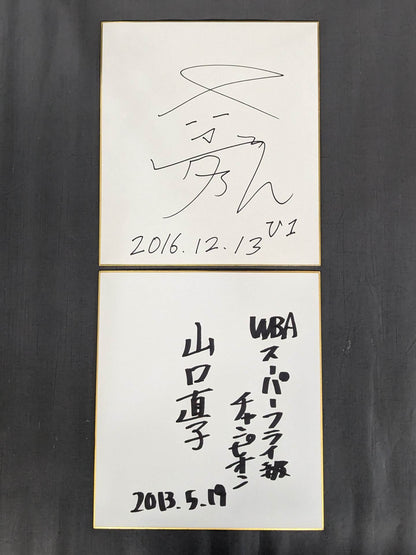 2016.12.13
V1
WBA
スーパーフライ級
チャンピオン
山口直子
2013.5.19